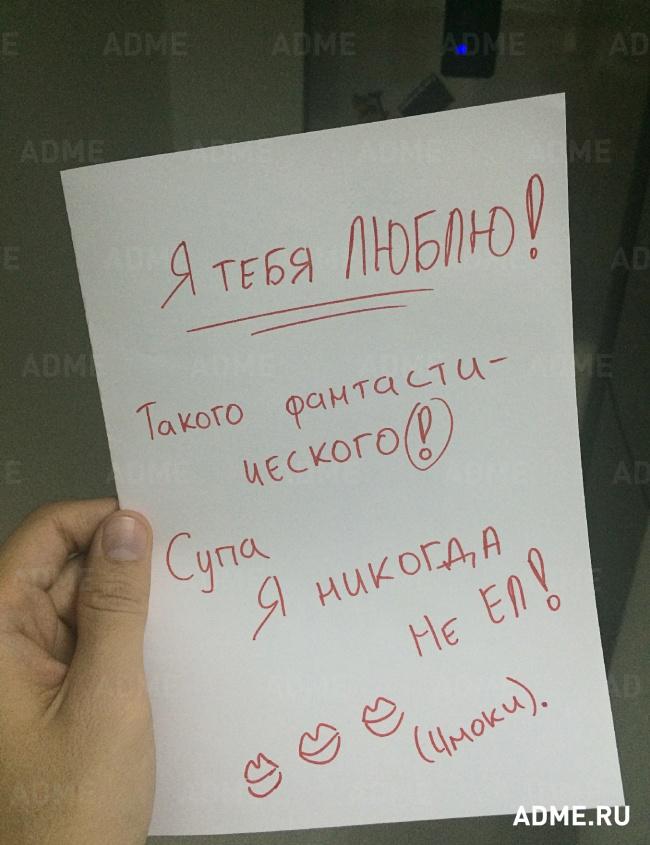 Я ТЕБЯ ЛЮБЛЮ!
Такого фантасти-
ческого!
Супа
Я НИКОГДА
НЕ ЕЛ!
(Чмоки).
ADME.RU